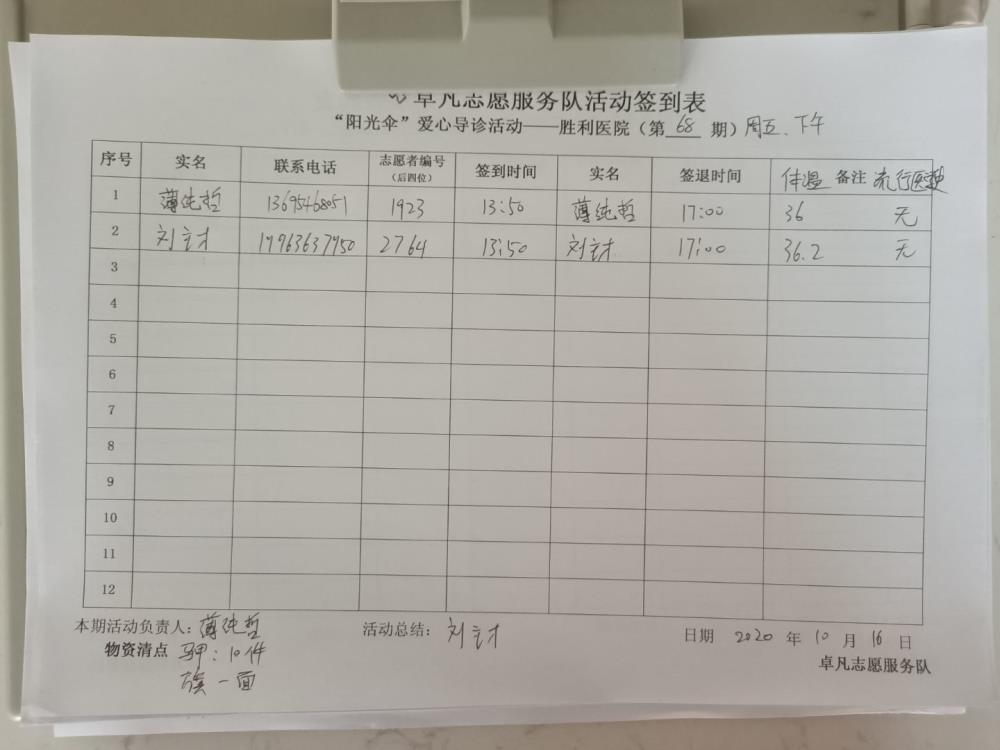 卓凡志愿服务队活动签到表
“阳光伞”爱心导诊活动——胜利医院（第 68 期）周五、下午
序号 实名 联系电话 志愿者编号（后四位） 签到时间 实名 签退时间 体温 备注 流行医史
1 薄纯哲 13695468051 1923 13:50 薄纯哲 17:00 36 无
2 刘立才 17963637950 2764 13:50 刘立才 17:00 36.2 无
3
4
5
6
7
8
9
10
11
12
本期活动负责人：薄纯哲 活动总结：刘立才 日期 2020 年 10 月 16 日
物资清点 马甲：10件 卓凡志愿服务队
旗一面